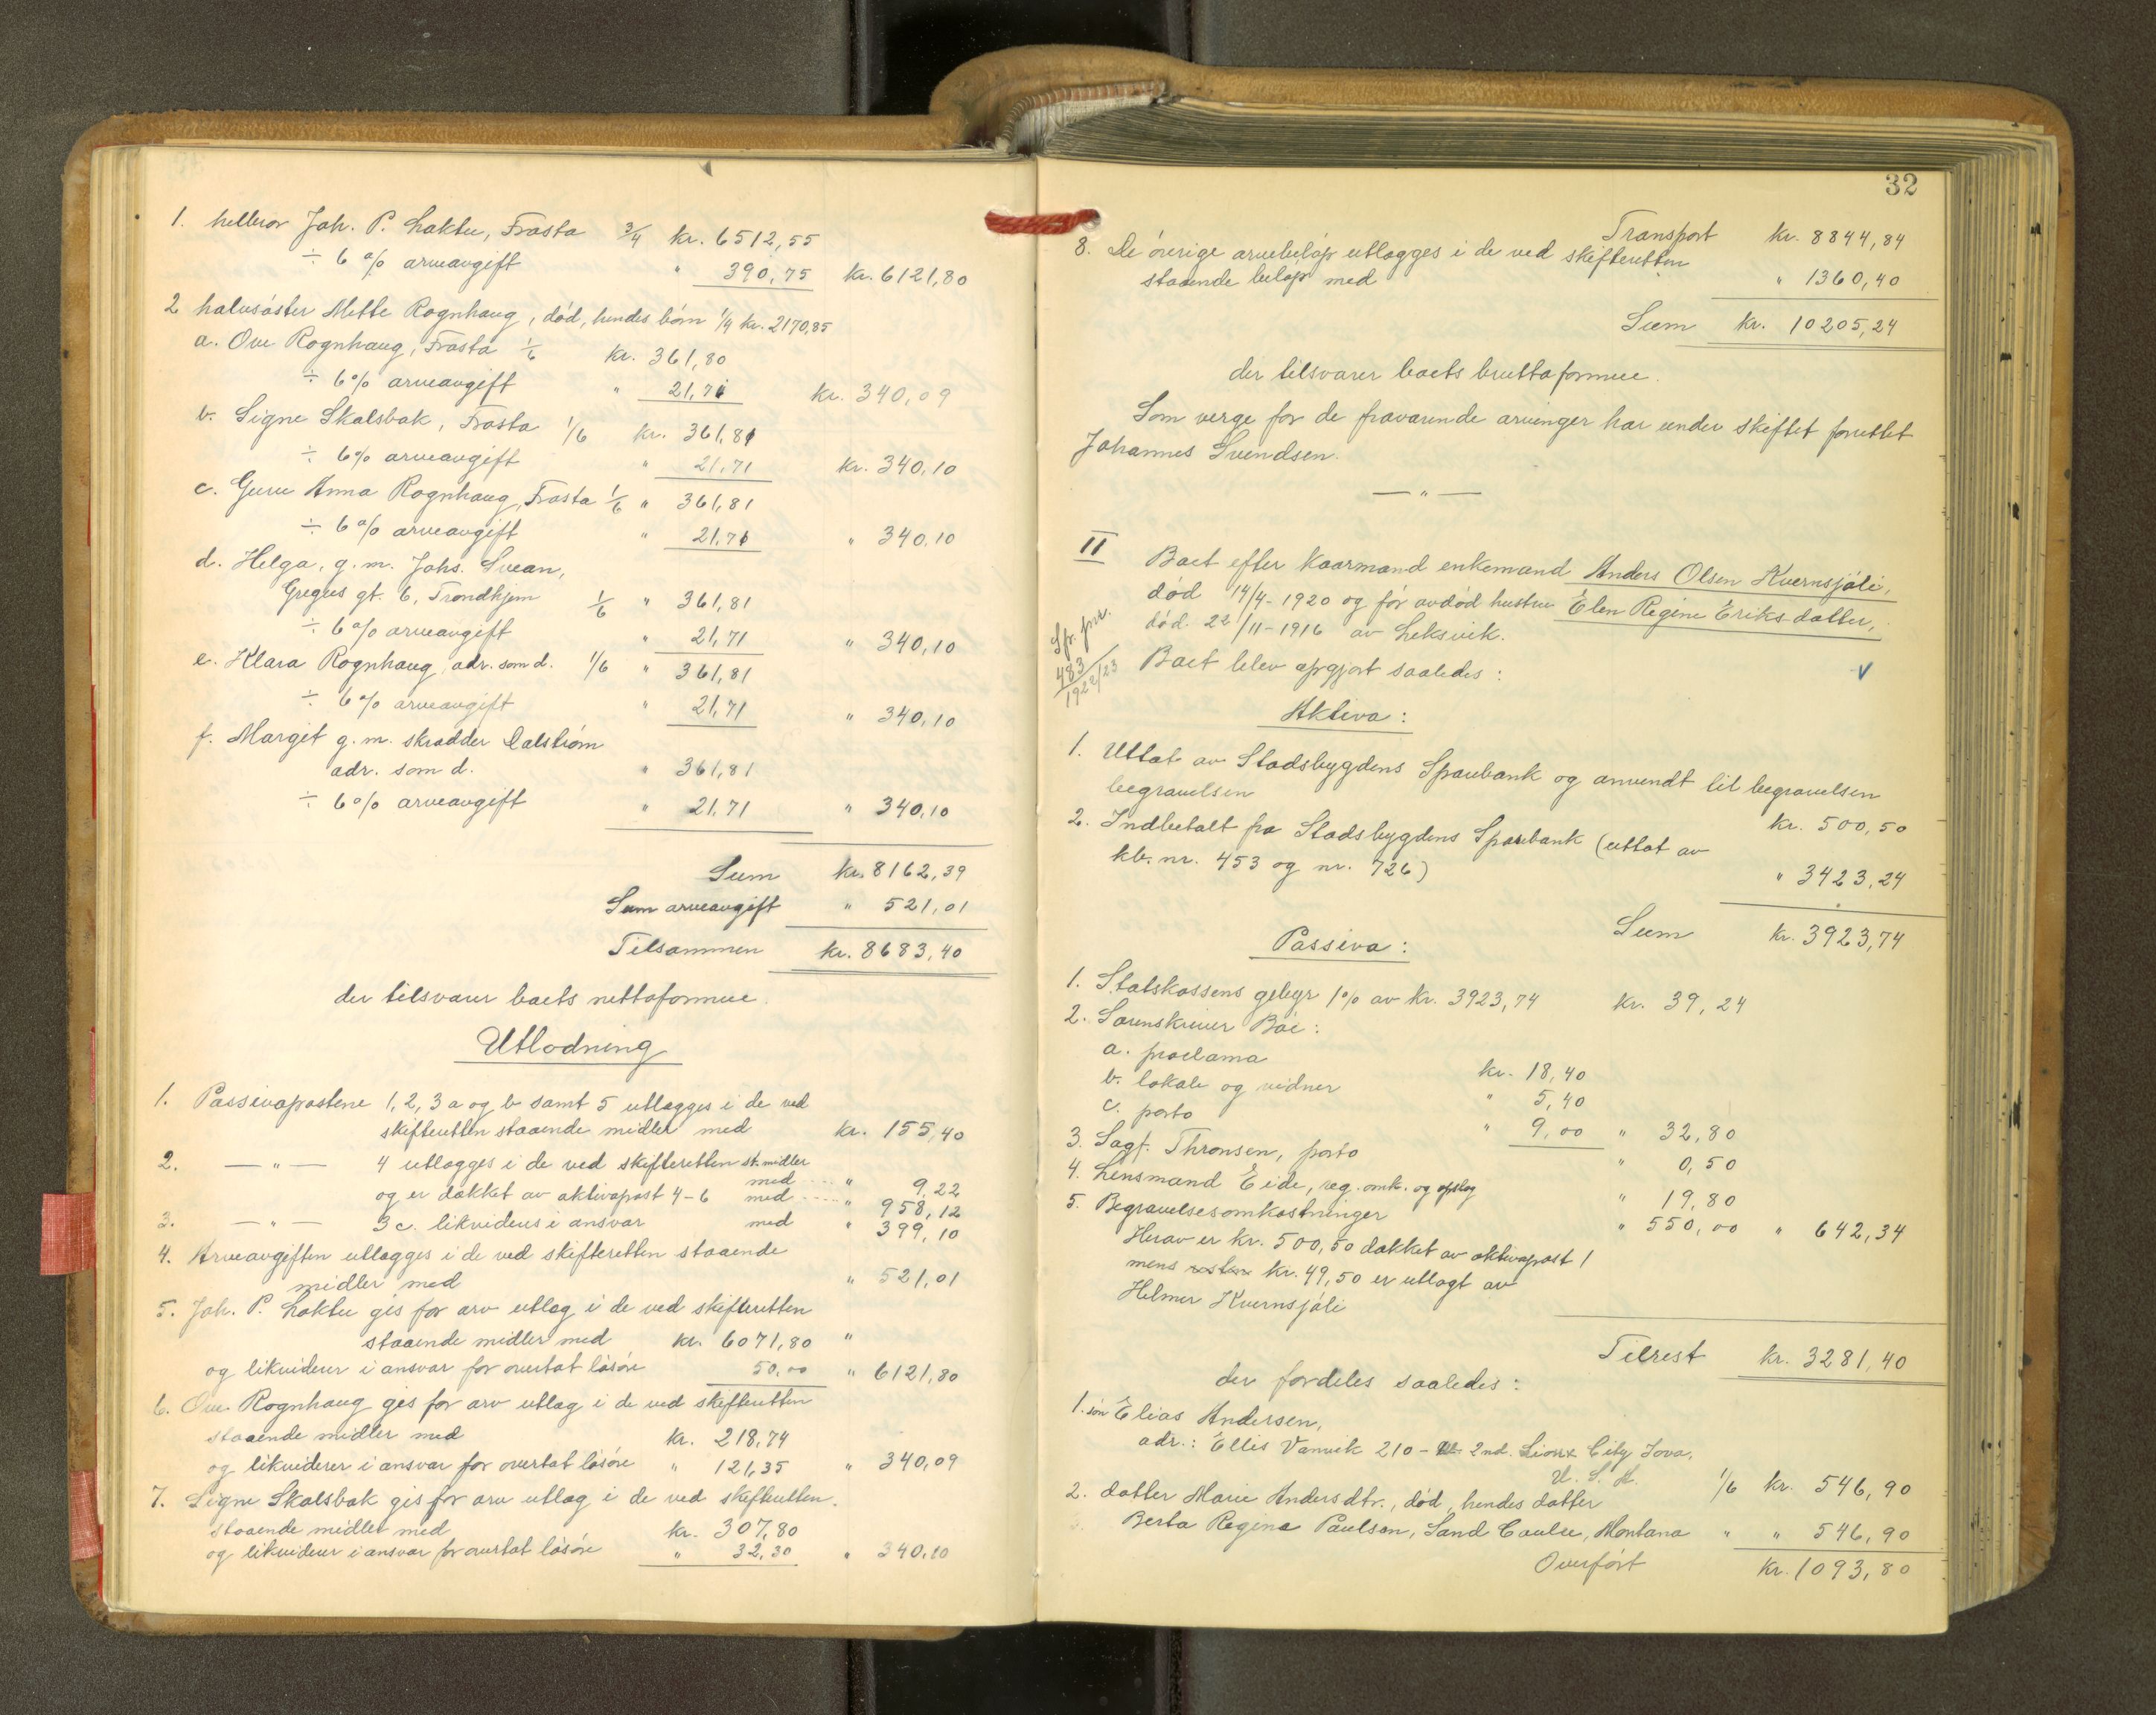 1. helbror Joh. P. Loktu, Frosta 3/4 kr. 6512,55
÷ 6 % arveavgift " 390,75 kr. 6121,80
2 halvsöster Mette Rognhaug, död, hendes börn 1/4 kr. 2170,85
a. Ove Rognhaug, Frosta 1/6 kr. 361,80
÷ 6 % arveavgift " 21,71 kr. 340,09
b. Signe Skalsbak, Frosta 1/6 kr. 361,81
÷ 6 % arveavgift " 21,71 kr. 340,10
c. Guru Anna Rognhaug, Frosta 1/6 " 361,81
÷ 6 % arveavgift " 21,71 " 340,10
d. Helga, g.m. Johs. Svean,
Gregus gt. 6, Trondhjem 1/6 " 361,81
÷ 6 % arveavgift " 21,71 " 340,10
e. Klara Rognhaug, adr. som d. 1/6 " 361,81
÷ 6 % arveavgift " 21,71 " 340,10
f. Margit g.m. skrædder Dalström
adr. som d. " 361,81
÷ 6 % arveavgift " 21,71 " 340,10
Sum kr. 8162,39
Sum arveavgift " 521,01
Tilsammen kr. 8683,40
der tilsvarer boets nettoformue.
Utlodning
1. Passivapostene 1, 2, 3 a og b samt 5 utlægges i de ved
skifteretten staaende midler med kr. 155,40
2. — " — 4 utlægges i de ved skifteretten st. midler
med " 9,22
og er dækket av aktivapost 4-6 med " 958,12
3. — " — 3 c. likvideres i ansvar med " 399,10
4. Arveavgiften utlægges i de ved skifteretten staaende
midler med " 521,01
5. Joh. P. Loktu gis for arv utlæg i de ved skifteretten
staaende midler med kr. 6071,80 "
og likviderer i ansvar for overtat lösöre 50,00 " 6121,80
6. Ove Rognhaug gis for arv utlæg i de ved skifteretten
staaende midler med kr. 218,74
og likviderer i ansvar for overtat lösöre " 121,35 " 340,09
7. Signe Skalsbak gis for arv utlæg i de ved skifteretten.
staaende midler med kr. 307,80
og likviderer i ansvar for overtat lösöre " 32,30 " 340,10
32
Transport kr. 8844,84
8. De övrige arvebelöp utlægges i de ved skifteretten
staaende belöp med " 1360,40
Sum kr. 10205,24
der tilsvarer boets bruttoformue.
Som verge for de fraværende arvinger har under skiftet forrettet
Johannes Svendsen.
— " —
II Boet efter kaarmand enkemand Anders Olsen Kvernsjöli,
död 14/4-1920 og för avdöd hustru Elen Regine Eriksdatter,
död. 22/11-1916 av Leksvik.
Sp. pr. 483/1922/23
Boet blev opgjort saaledes: v
Aktiva:
1. Uttat av Stadsbygdens Sparebank og anvendt til begravelsen
begravelsen kr. 500,50
2. Indbetalt fra Stadsbygdens Sparebank (uttat av
kb. nr. 453 og nr. 726) " 3423,24
Sum kr. 3923,74
Passiva:
1. Statskassens gebyr 1% av kr. 3923,74 kr. 39,24
2. Sorenskriver Böe:
a. proclama kr. 18,40
b. lokale og vidner " 5,40
c. porto " 9,00 " 32,80
3. Sagf. Thronsen, porto " 0,50
4. Lensmand Eide, reg. omk. og opslag " 19,80
5. Begravelsesomkostninger " 550,00 " 642,34
Herav er kr. 500,50 dækket av aktivapost 1
mens resten kr. 49,50 er utlagt av
Helmer Kvernsjöli
Tilrest kr. 3281,40
der fordeles saaledes:
1. sön Elias Andersen,
adr.: Ellis Vanvik 210 - 2nd. Sioux City Iova,
U. S. A. 1/6 kr. 546,90
2. datter Marie Andersdtr., död, hendes datter
Berta Regina Paulson, Sand Coulee, Montana " " 546,90
Overfört kr. 1093,80